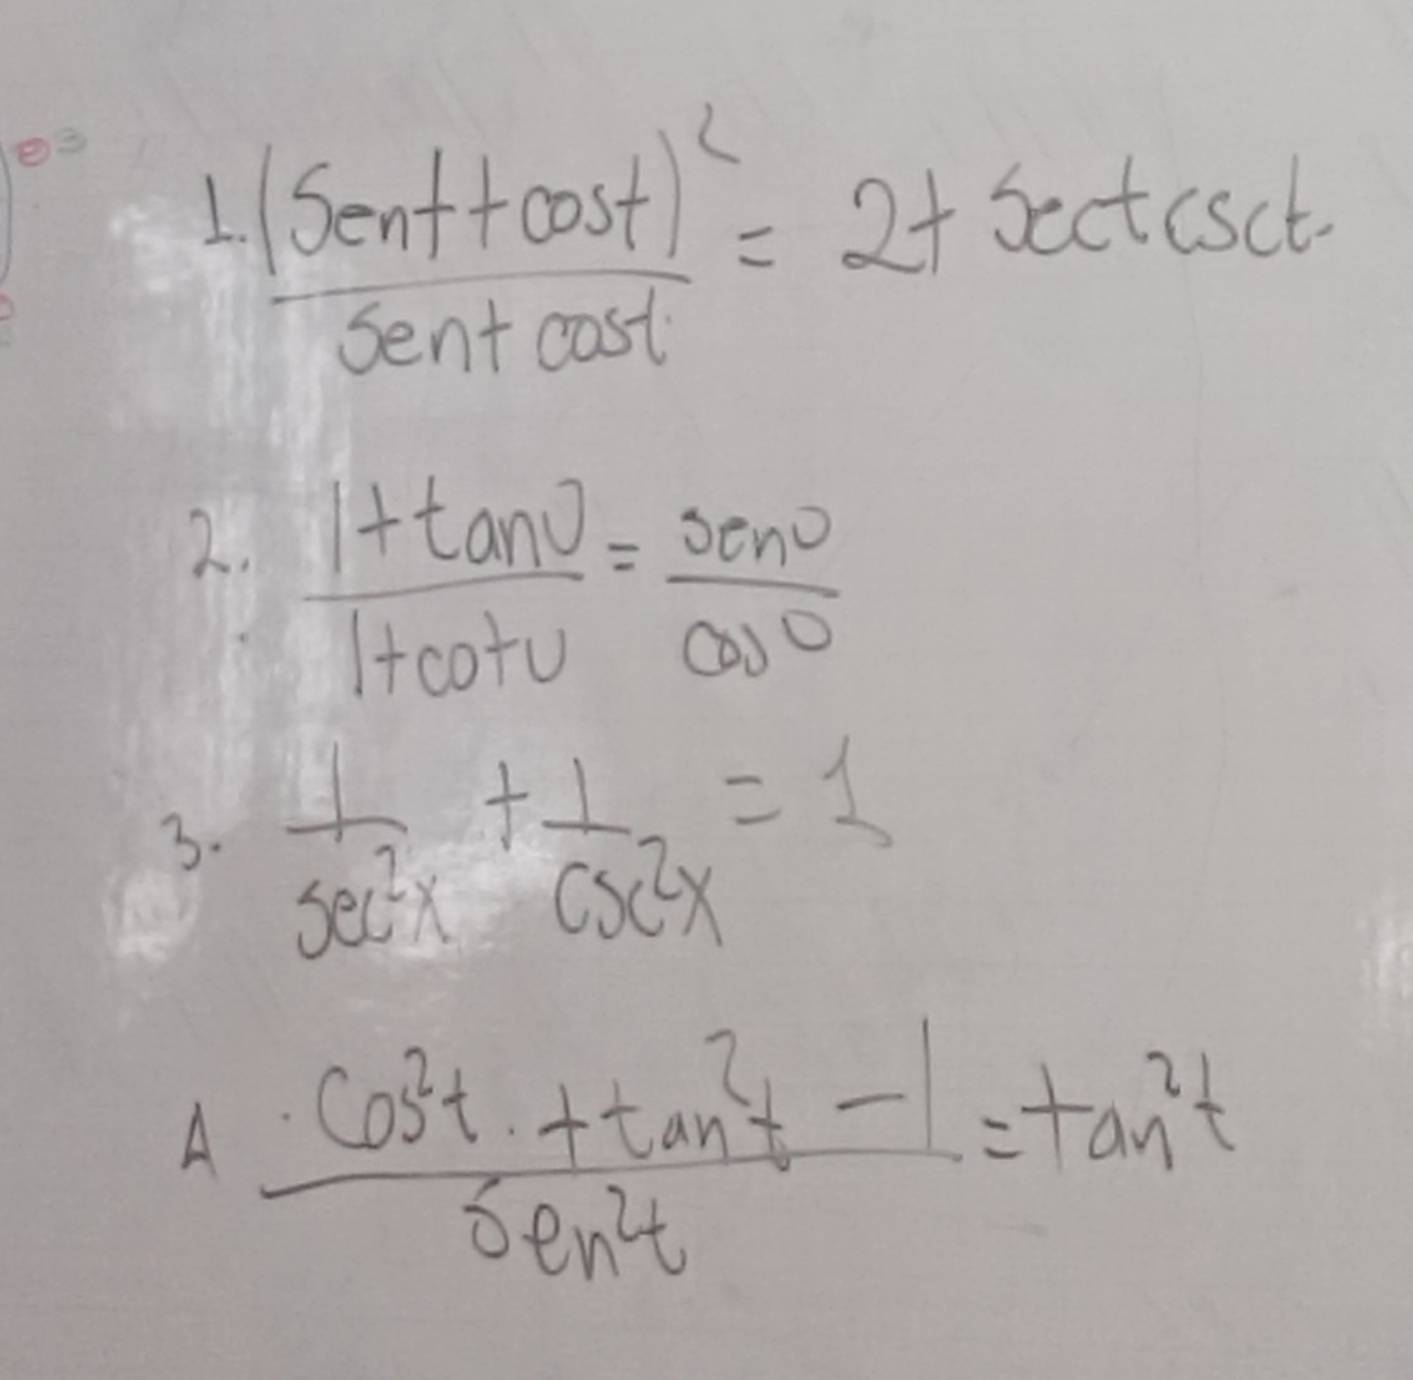 1. (Sent + cost)² / sent cost = 2 + sect csct.
2. 1 + tanU / 1 + cotU = senU / cosU
3. 1 / sec²x + 1 / csc²x = 1
4 . Cos²t . + tan²t - 1 / Sen²t = tan²t